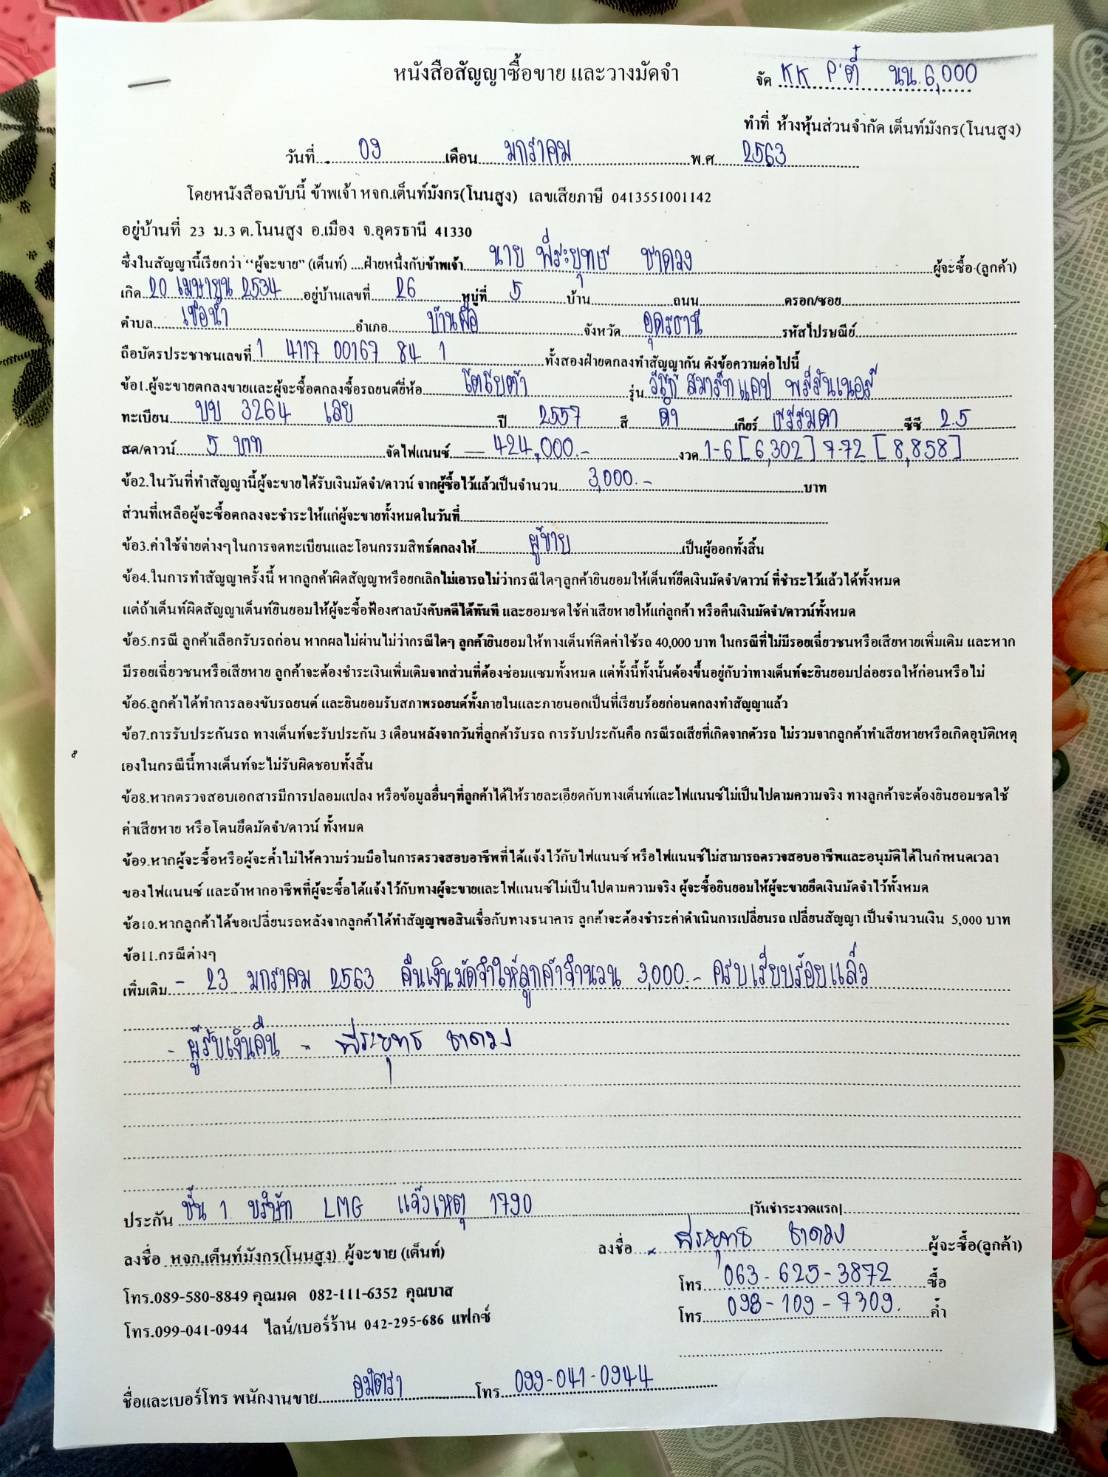 หนังสือสัญญาซื้อขาย และวางมัดจำ
จัด KK P'ตี๋ นน.6,000
ทำที่ ห้างหุ้นส่วนจำกัด เต็นท์มังกร(โนนสูง)
วันที่ 09 เดือน มกราคม พ.ศ 2563
โดยหนังสือฉบับนี้ ข้าพเจ้า หจก.เต็นท์มังกร(โนนสูง) เลขเสียภาษี 0413551001142
อยู่บ้านที่ 23 ม.3 ต.โนนสูง อ.เมือง จ.อุดรธานี 41330
ซึ่งในสัญญานี้เรียกว่า "ผู้จะขาย" (เต็นท์) ....ฝ่ายหนึ่งกับข้าพเจ้า นาย พีระยุทธ ชาดวง ผู้จะซื้อ (ลูกค้า)
เกิด 20 เมษายน 2534 อยู่บ้านเลขที่ 26 หมู่ที่ 5 บ้าน ถนน ตรอก/ซอย
ตำบล เขือน้ำ อำเภอ บ้านผือ จังหวัด อุดรธานี รหัสไปรษณีย์
ถือบัตรประชาชนเลขที่ 1 4117 00167 84 1 ทั้งสองฝ่ายตกลงทำสัญญากัน ดังข้อความต่อไปนี้
ข้อ1.ผู้จะขายตกลงขายและผู้จะซื้อตกลงซื้อรถยนต์ยี่ห้อ โตโยต้า รุ่น วีโก้ สมาร์ทแคป พรีรันเนอร์
ทะเบียน บบ 3264 เลย ปี 2557 สี ดำ เกียร์ ธรรมดา ซีซี 2.5
สด/ดาวน์ 5 บาท จัดไฟแนนซ์ 424,000.- งวด 1-6 [6,302] 7-72 [8,858]
ข้อ2.ในวันที่ทำสัญญานี้ผู้จะขายได้รับเงินมัดจำ/ดาวน์ จากผู้ซื้อไว้แล้วเป็นจำนวน 3,000.- บาท
ส่วนที่เหลือผู้จะซื้อตกลงจะชำระให้แก่ผู้จะขายทั้งหมดในวันที่
ข้อ3.ค่าใช้จ่ายต่างๆในการจดทะเบียนและโอนกรรมสิทธิ์ตกลงให้ ผู้ขาย เป็นผู้ออกทั้งสิ้น
ข้อ4.ในการทำสัญญาครั้งนี้ หากลูกค้าผิดสัญญาหรือยกเลิกไม่เอารถไม่ว่ากรณีใดๆลูกค้ายินยอมให้เต็นท์ยึดเงินมัดจำ/ดาวน์ ที่ชำระไว้แล้วได้ทั้งหมด
แต่ถ้าเต็นท์ผิดสัญญาเต็นท์ยินยอมให้ผู้จะซื้อฟ้องศาลบังคับคดีได้ทันที และยอมชดใช้ค่าเสียหายให้แก่ลูกค้า หรือคืนเงินมัดจำ/ดาวน์ทั้งหมด
ข้อ5.กรณี ลูกค้าเลือกรับรถก่อน หากผลไม่ผ่านไม่ว่ากรณีใดๆ ลูกค้ายินยอมให้ทางเต็นท์คิดค่าใช้รถ 40,000 บาท ในกรณีที่ไม่มีรอยเฉี่ยวชนหรือเสียหายเพิ่มเติม และหาก
มีรอยเฉี่ยวชนหรือเสียหาย ลูกค้าจะต้องชำระเงินเพิ่มเติมจากส่วนที่ต้องซ่อมแซมทั้งหมด แต่ทั้งนี้ทั้งนั้นต้องขึ้นอยู่กับว่าทางเต็นท์จะยินยอมปล่อยรถให้ก่อนหรือไม่
ข้อ6.ลูกค้าได้ทำการลองขับรถยนต์ และยินยอมรับสภาพรถยนต์ทั้งภายในและภายนอกเป็นที่เรียบร้อยก่อนตกลงทำสัญญาแล้ว
ข้อ7.การรับประกันรถ ทางเต็นท์จะรับประกัน 3 เดือนหลังจากวันที่ลูกค้ารับรถ การรับประกันคือ กรณีรถเสียที่เกิดจากตัวรถ ไม่รวมจากลูกค้าทำเสียหายหรือเกิดอุบัติเหตุ
เองในกรณีนี้ทางเต็นท์จะไม่รับผิดชอบทั้งสิ้น
ข้อ8.หากตรวจสอบเอกสารมีการปลอมแปลง หรือข้อมูลอื่นๆที่ลูกค้าได้ให้รายละเอียดกับทางเต็นท์และไฟแนนซ์ไม่เป็นไปตามความจริง ทางลูกค้าจะต้องยินยอมชดใช้
ค่าเสียหาย หรือโดนยึดมัดจำ/ดาวน์ ทั้งหมด
ข้อ9.หากผู้จะซื้อหรือผู้จะค้ำไม่ให้ความร่วมมือในการตรวจสอบอาชีพที่ได้แจ้งไว้กับไฟแนนซ์ หรือไฟแนนซ์ไม่สามารถตรวจสอบอาชีพและอนุมัติได้ในกำหนดเวลา
ของไฟแนนซ์ และถ้าหากอาชีพที่ผู้จะซื้อได้แจ้งไว้กับทางผู้จะขายและไฟแนนซ์ไม่เป็นไปตามความจริง ผู้จะซื้อยินยอมให้ผู้จะขายยึดเงินมัดจำไว้ทั้งหมด
ข้อ10.หากลูกค้าได้ขอเปลี่ยนรถหลังจากลูกค้าได้ทำสัญญาขอสินเชื่อกับทางธนาคาร ลูกค้าจะต้องชำระค่าดำเนินการเปลี่ยนรถ เปลี่ยนสัญญา เป็นจำนวนเงิน 5,000 บาท
ข้อ11.กรณีต่างๆ
เพิ่มเติม - 23 มกราคม 2563 คืนเงินมัดจำให้ลูกค้าจำนวน 3,000.- ครบเรียบร้อยแล้ว
- ผู้รับเงินคืน - พีระยุทธ ชาดวง
ประกัน ชั้น 1 บริษัท LMG แจ้งเหตุ 1790 [วันชำระงวดแรก]
ลงชื่อ หจก.เต็นท์มังกร(โนนสูง) ผู้จะขาย (เต็นท์)
ลงชื่อ พีระยุทธ ชาดวง ผู้จะซื้อ(ลูกค้า)
โทร.089-580-8849 คุณมด 082-111-6352 คุณบาส
โทร. 063-625-3872 ซื้อ
โทร.099-041-0944 ไลน์/เบอร์ร้าน 042-295-686 แฟกซ์
โทร. 098-109-7309. ค้ำ
ชื่อและเบอร์โทร พนักงานขาย อมิตรา โทร 099-041-0944